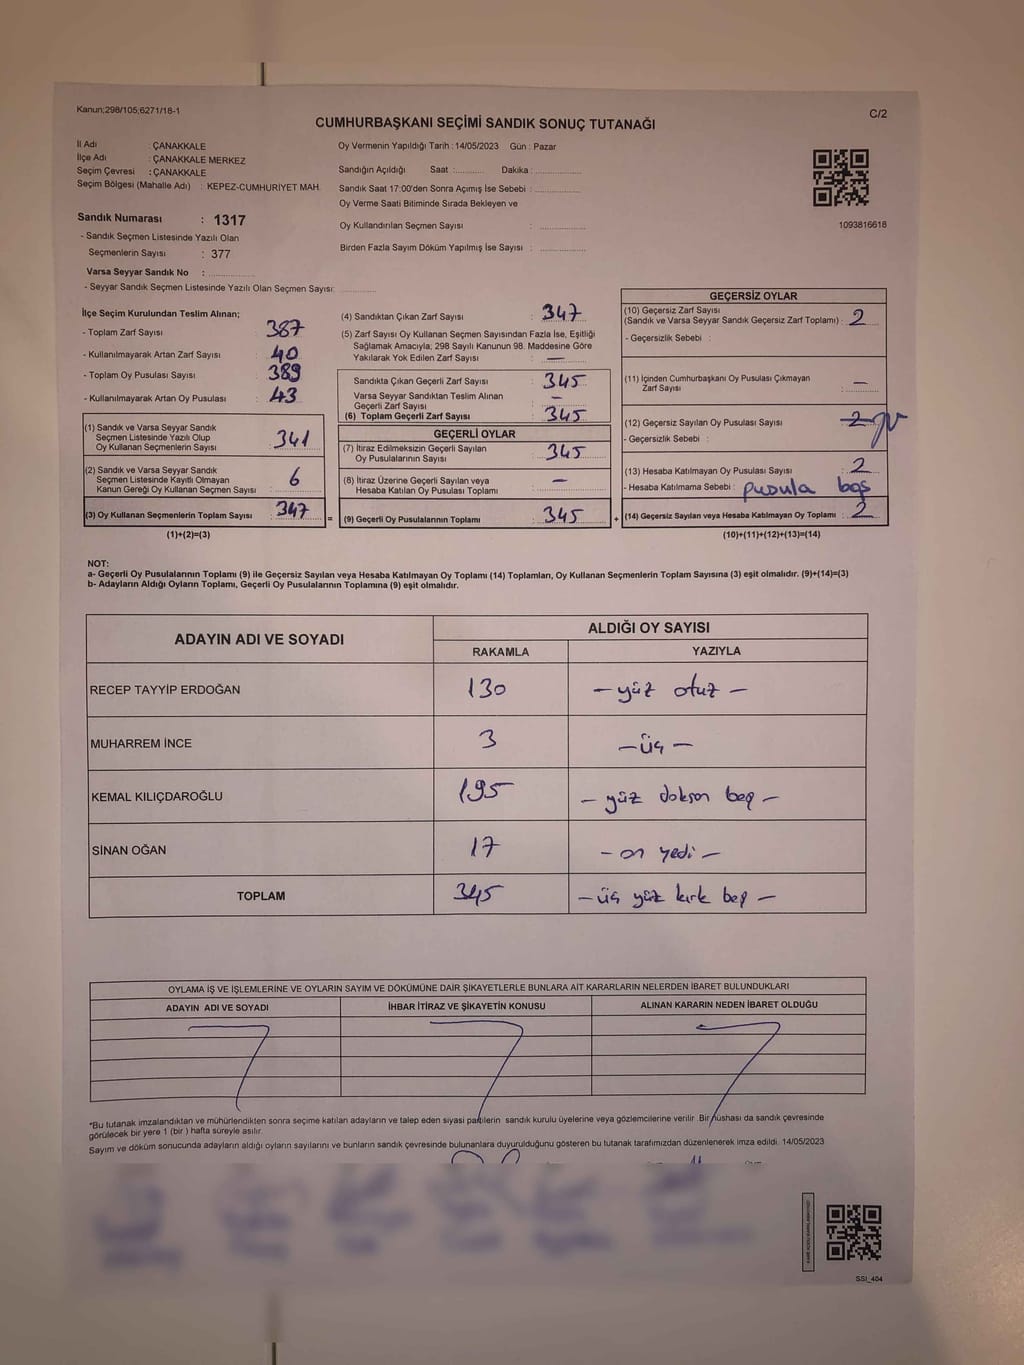 Kanun;298/105;6271/18-1
C/2
CUMHURBAŞKANI SEÇİMİ SANDIK SONUÇ TUTANAĞI
İl Adı : ÇANAKKALE
İlçe Adı : ÇANAKKALE MERKEZ
Seçim Çevresi : ÇANAKKALE
Seçim Bölgesi (Mahalle Adı) : KEPEZ-CUMHURİYET MAH.
Sandık Numarası : 1317
- Sandık Seçmen Listesinde Yazılı Olan
Seçmenlerin Sayısı : 377
Varsa Seyyar Sandık No :
- Seyyar Sandık Seçmen Listesinde Yazılı Olan Seçmen Sayısı:
Oy Vermenin Yapıldığı Tarih : 14/05/2023 Gün : Pazar
Sandığın Açıldığı Saat : Dakika :
Sandık Saat 17:00'den Sonra Açımış İse Sebebi :
Oy Verme Saati Bitiminde Sırada Bekleyen ve
Oy Kullandırılan Seçmen Sayısı :
Birden Fazla Sayım Döküm Yapılmış İse Sayısı :
1093816618
İlçe Seçim Kurulundan Teslim Alınan;
- Toplam Zarf Sayısı : 387
- Kullanılmayarak Artan Zarf Sayısı : 40
- Toplam Oy Pusulası Sayısı : 389
- Kullanılmayarak Artan Oy Pusulası : 43
(1) Sandık ve Varsa Seyyar Sandık
Seçmen Listesinde Yazılı Olup
Oy Kullanan Seçmenlerin Sayısı : 341
(2) Sandık ve Varsa Seyyar Sandık
Seçmen Listesinde Kayıtlı Olmayan
Kanun Gereği Oy Kullanan Seçmen Sayısı : 6
(3) Oy Kullanan Seçmenlerin Toplam Sayısı : 347
(1)+(2)=(3)
(4) Sandıktan Çıkan Zarf Sayısı : 347
(5) Zarf Sayısı Oy Kullanan Seçmen Sayısından Fazla İse, Eşitliği
Sağlamak Amacıyla; 298 Sayılı Kanunun 98. Maddesine Göre
Yakılarak Yok Edilen Zarf Sayısı : —
Sandıkta Çıkan Geçerli Zarf Sayısı : 345
Varsa Seyyar Sandıktan Teslim Alınan
Geçerli Zarf Sayısı : —
(6) Toplam Geçerli Zarf Sayısı : 345
GEÇERLİ OYLAR
(7) İtiraz Edilmeksizin Geçerli Sayılan
Oy Pusulalarının Sayısı : 345
(8) İtiraz Üzerine Geçerli Sayılan veya
Hesaba Katılan Oy Pusulası Toplamı : —
= (9) Geçerli Oy Pusulalarının Toplamı : 345
GEÇERSİZ OYLAR
(10) Geçersiz Zarf Sayısı
(Sandık ve Varsa Seyyar Sandık Geçersiz Zarf Toplamı) : 2
- Geçersizlik Sebebi :
(11) İçinden Cumhurbaşkanı Oy Pusulası Çıkmayan
Zarf Sayısı : —
(12) Geçersiz Sayılan Oy Pusulası Sayısı : 2
- Geçersizlik Sebebi :
(13) Hesaba Katılmayan Oy Pusulası Sayısı : 2
- Hesaba Katılmama Sebebi : pusula boş
+ (14) Geçersiz Sayılan veya Hesaba Katılmayan Oy Toplamı : 2
(10)+(11)+(12)+(13)=(14)
NOT:
a- Geçerli Oy Pusulalarının Toplamı (9) ile Geçersiz Sayılan veya Hesaba Katılmayan Oy Toplamı (14) Toplamları, Oy Kullanan Seçmenlerin Toplam Sayısına (3) eşit olmalıdır. (9)+(14)=(3)
b- Adayların Aldığı Oyların Toplamı, Geçerli Oy Pusulalarının Toplamına (9) eşit olmalıdır.
ADAYIN ADI VE SOYADI
ALDIĞI OY SAYISI
RAKAMLA YAZIYLA
RECEP TAYYİP ERDOĞAN 130 – yüz otuz –
MUHARREM İNCE 3 – üç –
KEMAL KILIÇDAROĞLU 195 – yüz doksan beş –
SİNAN OĞAN 17 – on yedi –
TOPLAM 345 – üç yüz kırk beş –
OYLAMA İŞ VE İŞLEMLERİNE VE OYLARIN SAYIM VE DÖKÜMÜNE DAİR ŞİKAYETLERLE BUNLARA AİT KARARLARIN NELERDEN İBARET BULUNDUKLARI
ADAYIN ADI VE SOYADI İHBAR İTİRAZ VE ŞİKAYETİN KONUSU ALINAN KARARIN NEDEN İBARET OLDUĞU
*Bu tutanak imzalandıktan ve mühürlendikten sonra seçime katılan adayların ve talep eden siyasi partilerin sandık kurulu üyelerine veya gözlemcilerine verilir. Bir nüshası da sandık çevresinde
görülecek bir yere 1 (bir ) hafta süreyle asılır.
Sayım ve döküm sonucunda adayların aldığı oyların sayılarını ve bunların sandık çevresinde bulunanlara duyurulduğunu gösteren bu tutanak tarafımızdan düzenlenerek imza edildi. 14/05/2023
SSI_404